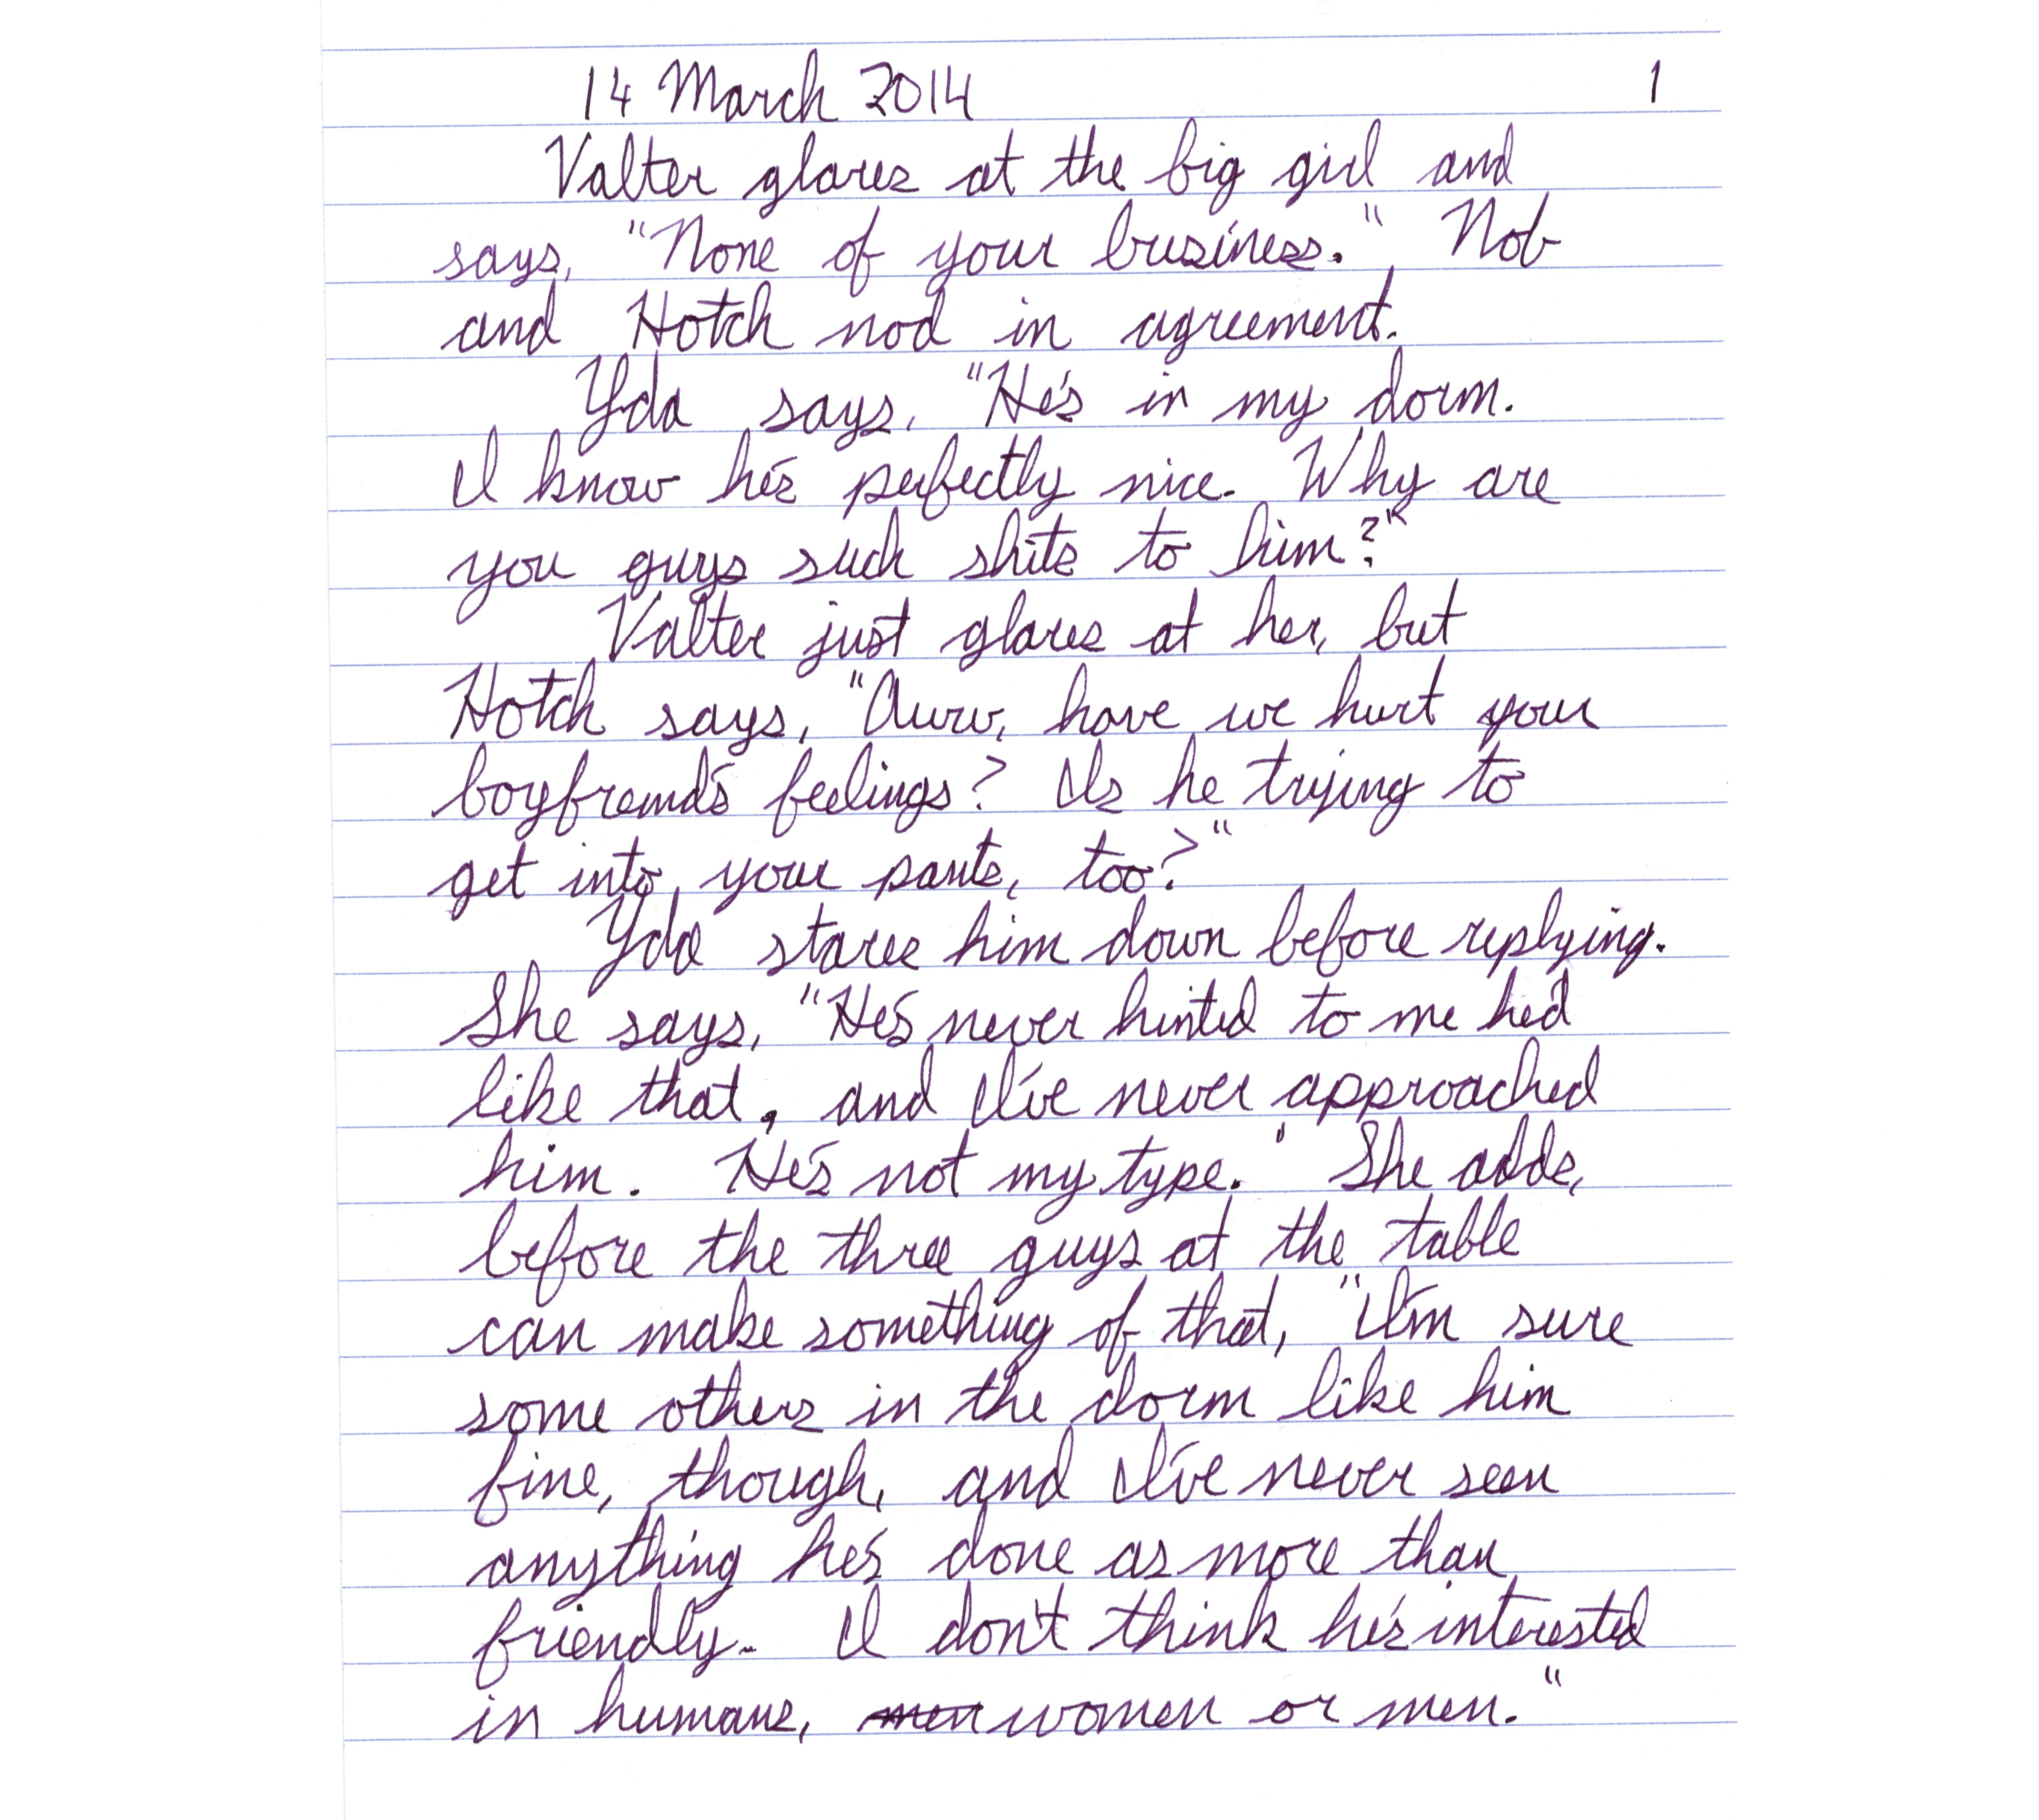 14 March 2014 1
Valter glares at the big girl and
says, "None of your business." Nob
and Hotch nod in agreement.
Yda says, "He's in my dorm.
I know he's perfectly nice. Why are
you guys such shits to him?"
Valter just glares at her, but
Hotch says, "Aww, have we hurt your
boyfremd's feelings? Is he trying to
get into your pants, too?"
Yda stares him down before replying.
She says, "He's never hinted to me he'd
like that, and I've never approached
him. He's not my type." She adds,
before the three guys at the table
can make something of that, "I'm sure
some others in the dorm like him
fine, though, and I've never seen
anything he's done as more than
friendly. I don't think he's interested
in humans, ~~men~~ women or men."